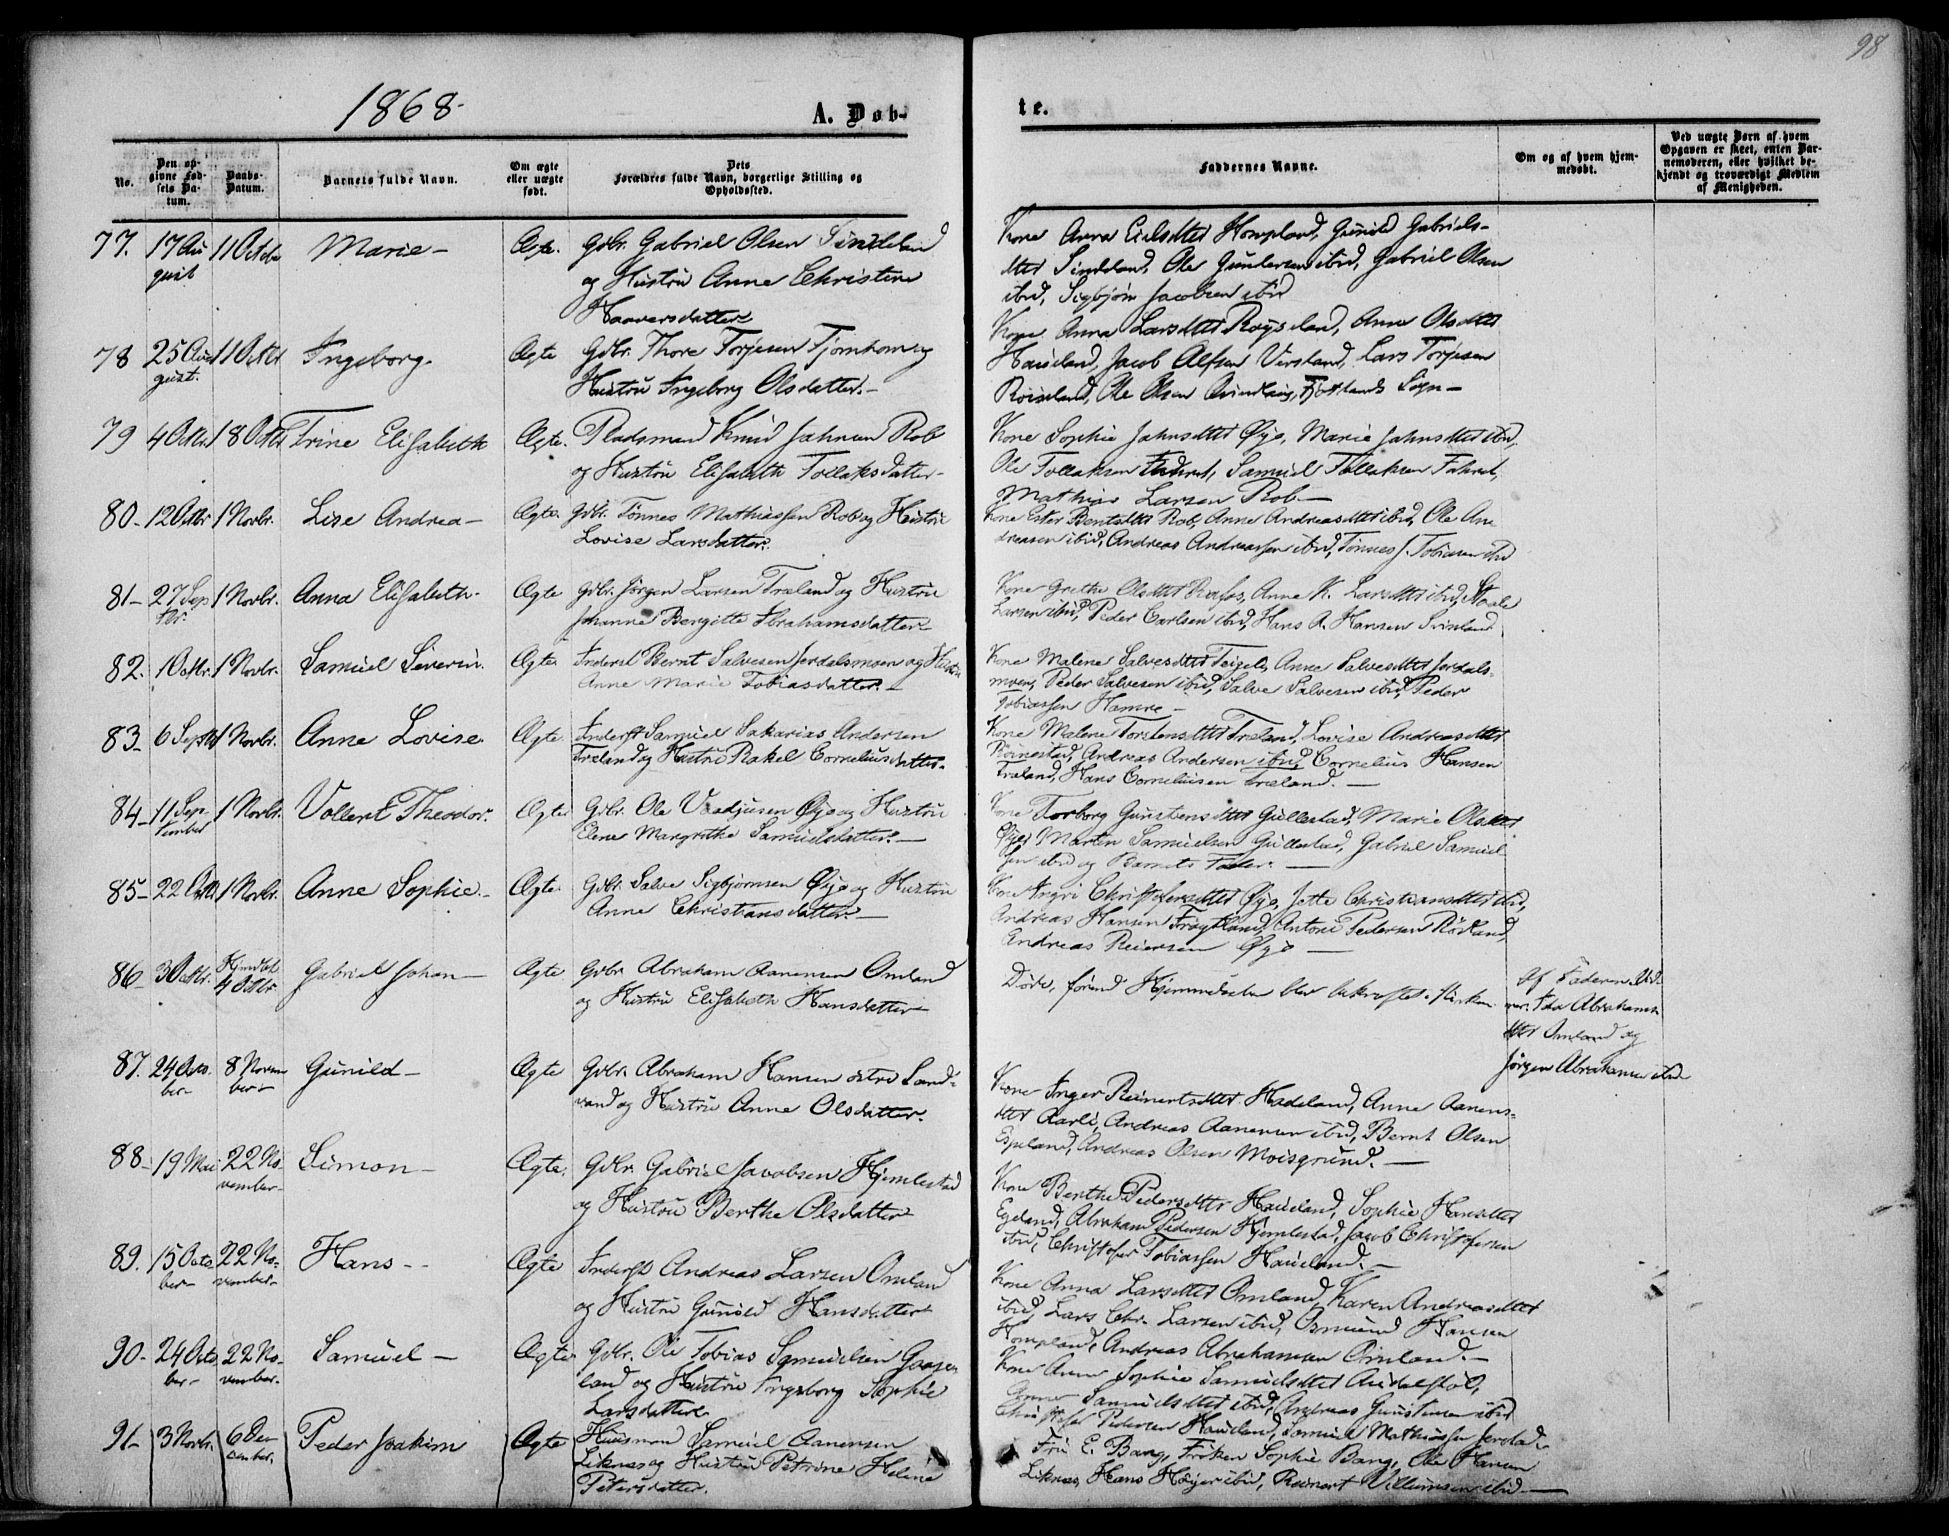 98
1868.
A. Døb-
te.
No.
Den op-
givne Fød-
sels Da-
tum.
Daabs-
Datum.
Barnets fulde Navn.
Om ægte
eller uægte
født.
Dets
Forældres fulde Navn, borgerlige Stilling og
Opholdssted.
Faddernes Navne.
Om og af hvem hjem-
medøbt.
Ved uægte Børn af hvem
Opgaven er skeet, enten Bar-
nemoderen, eller hvilket be-
kjendt og troværdigt Medlem
af Menigheden.
77. 17 Au 11 Octob Marie - Ægte. Gdbr. Gabriel Olsen Sindeland
gust og Hustru Anne Christine
Haaversdatter
Kone Anna Eielsdtter Hompland, Gunild Gabriels-
dtter Sindeland, Ole Gundersen ibid, Gabriel Olsen
ibid, Sigbjørn Jacobsen ibid
78 25 Au 11 Octbr Ingeborg. Ægte Gdbr. Thore Torjesen Tjomhom og
gust. Hustru Ingeborg Olsdatter. -
Kone Anna Larsdtter Røyseland, Anne Olsdtter
Haueland, Jacob Alfsen Virsland, Lars Torjesen
Røiseland, Ole Olsen Fjotlands Sogn -
79 4 Octbr 18 Octbr Trine Elisabeth Ægte. Pladsmand Knud Jahnsen Rob
og Hustru Elisabeth Tollaksdatter -
Kone Sophie Jahnsdtter Øye, Marie Jahnsdtter ibid,
Ole Tollaksen Samuel Tollaksen
Mathias Larsen Rob. -
80 - 12 Octbr 1 Novbr. Lise Andrea - Ægte. Gdbr. Tønnes Mathiassen Rob og Hustru
Lovise Larsdatter.
Kone Ester Bentsdtter Rob, Anne Andreasdtter ibid, Ole An
dreasen ibid, Andreas Andreassen ibid, Tønnes J. Tobiasen ibid
81 - 27 Sep 1 Novbr. Anna Elisabeth. Ægte Gdbr. Jørgen Larsen Træland og Hustru
tbr. Johanne Bergitte Abrahamsdatter
Kone Grethe Olsdtter Rafos, Anne K. Larsdtter ibid, Staale
Larsen ibid, Peder Carlsen ibid, Hans A. Hansen
82. 1 Octbr. 1 Novbr. Samuel Severin. Ægte. Inderst Bernt Salvesen Jerdalsmoen og Hustru
Anne Marie Tobiasdatter. -
Kone Malene Salvesdtter Teigel, Anne Salvesdtter Jerdals-
moen, Peder Salvesen ibid, Salve Salvesen ibid, Peder
Tobiassen Hamre -
83 - 6 Septbr 1 Novbr. Anne Lovise. Ægte Inderst Samuel Sakarias Andersen
Træland og Hustru Rakel Corneliusdatter.
Kone Malene Torstensdtter Træland, Lovise Andreasdtter
Røinestad, Andreas Andersen ibid, Cornelius Hansen
Træland, Hans Corneliusen Træland. -
84 - 11 Sep 1 Novbr. Vollert Theodor. Ægte Gdbr. Ole Øye og Hustru
tember Elene Margrethe Samuelsdatter. -
Kone Torborg Gunstensdtter Gullestad, Marie Olsdtter
Øye, Martin Samuelsen Gullestad, Gabriel Samuel
sen ibid og Barnets Fader. -
85 - 22 Octbr 1 Novbr. Anne Sophie. - Ægte. Gdbr. Salve Sigbjørnsen Øye og Hustru
Anne Christiansdatter -
Kone Ingri Christofersdtter Øye, Jette Christiansdtter ibid,
Andreas Hansen Antoni Pedersen Rødland,
Andreas Reiersen Øye -
86 3 Octbr. Hjemdøbt Gabriel Johan - Ægte Gdbr. Abraham Aanensen Omland
4 Octbr. og Hustru Elisabeth Hansdatter
Døde, førend Hjemmedaaben blev bekræftet i Kirken.
Af Faderen. Vid-
ner: Ida Abrahams-
dtter Omland og
Jørgen Abrahamsen ibid
87. 24 Octo 8 Novem Gunild - Ægte Gdbr. Abraham Hansen østre Land-
ber - ber - vand og Hustru Anne Olsdatter.
Kone Inger Reinertsdtter Hadeland, Anne Aanens-
dtter Aarli, Andreas Aanensen ibid, Bernt Olsen
Espeland, Andreas Olsen Moisgrund. -
88 - 19 Mai 22 No- Simon - Ægte. Gdbr. Gabriel Jacobsen Hjemlestad
vember - og Hustru Berthe Olsdatter
Kone Berthe Pedersdtter Haueland, Sophie Hansdtter
Egeland, Abraham Pedersen Hjemlestad, Jacob Christofersen
ibid, Christofer Tobiassen Haueland. -
89. 15 Octo 22 No- Hans - - Ægte Inderst Andreas Larsen Omland
ber - vember - og Hustru Gunild Hansdatter
Kone Anna Larsdtter Omland, Karen Andreasdtter
ibid, Lars Chr. Larsen ibid, Osmund Hansen
Hompland, Andreas Abrahamsen Omland. -
90 - 24 Octo 22 No- Samuel - Ægte Gdbr. Ole Tobias Samuelsen Gaase-
ber - vember - land og Hustru Ingeborg Sophie
Larsdatter.
Kone Anne Sophie Samuelsdtter
Samuelsdtter ibid, Andreas Gunstensen ibid
Christofer Pedersen Haueland, Samuel Mathiassen Jerdal.
91 - 3 Novbr. 6 De Peder Joakim Ægte Huusmand Samuel Aanensen
cember. Liknes og Hustru Petrine Helene
Petersdatter.
Fru E. Bang, Frøken Sophie Bang, Ole Hansen
Liknes, Hans Høyer ibid, Reinert Villumsen ibid -